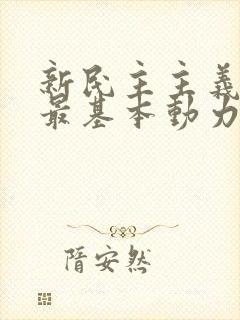 新民主主義
最基本動力
隋安然